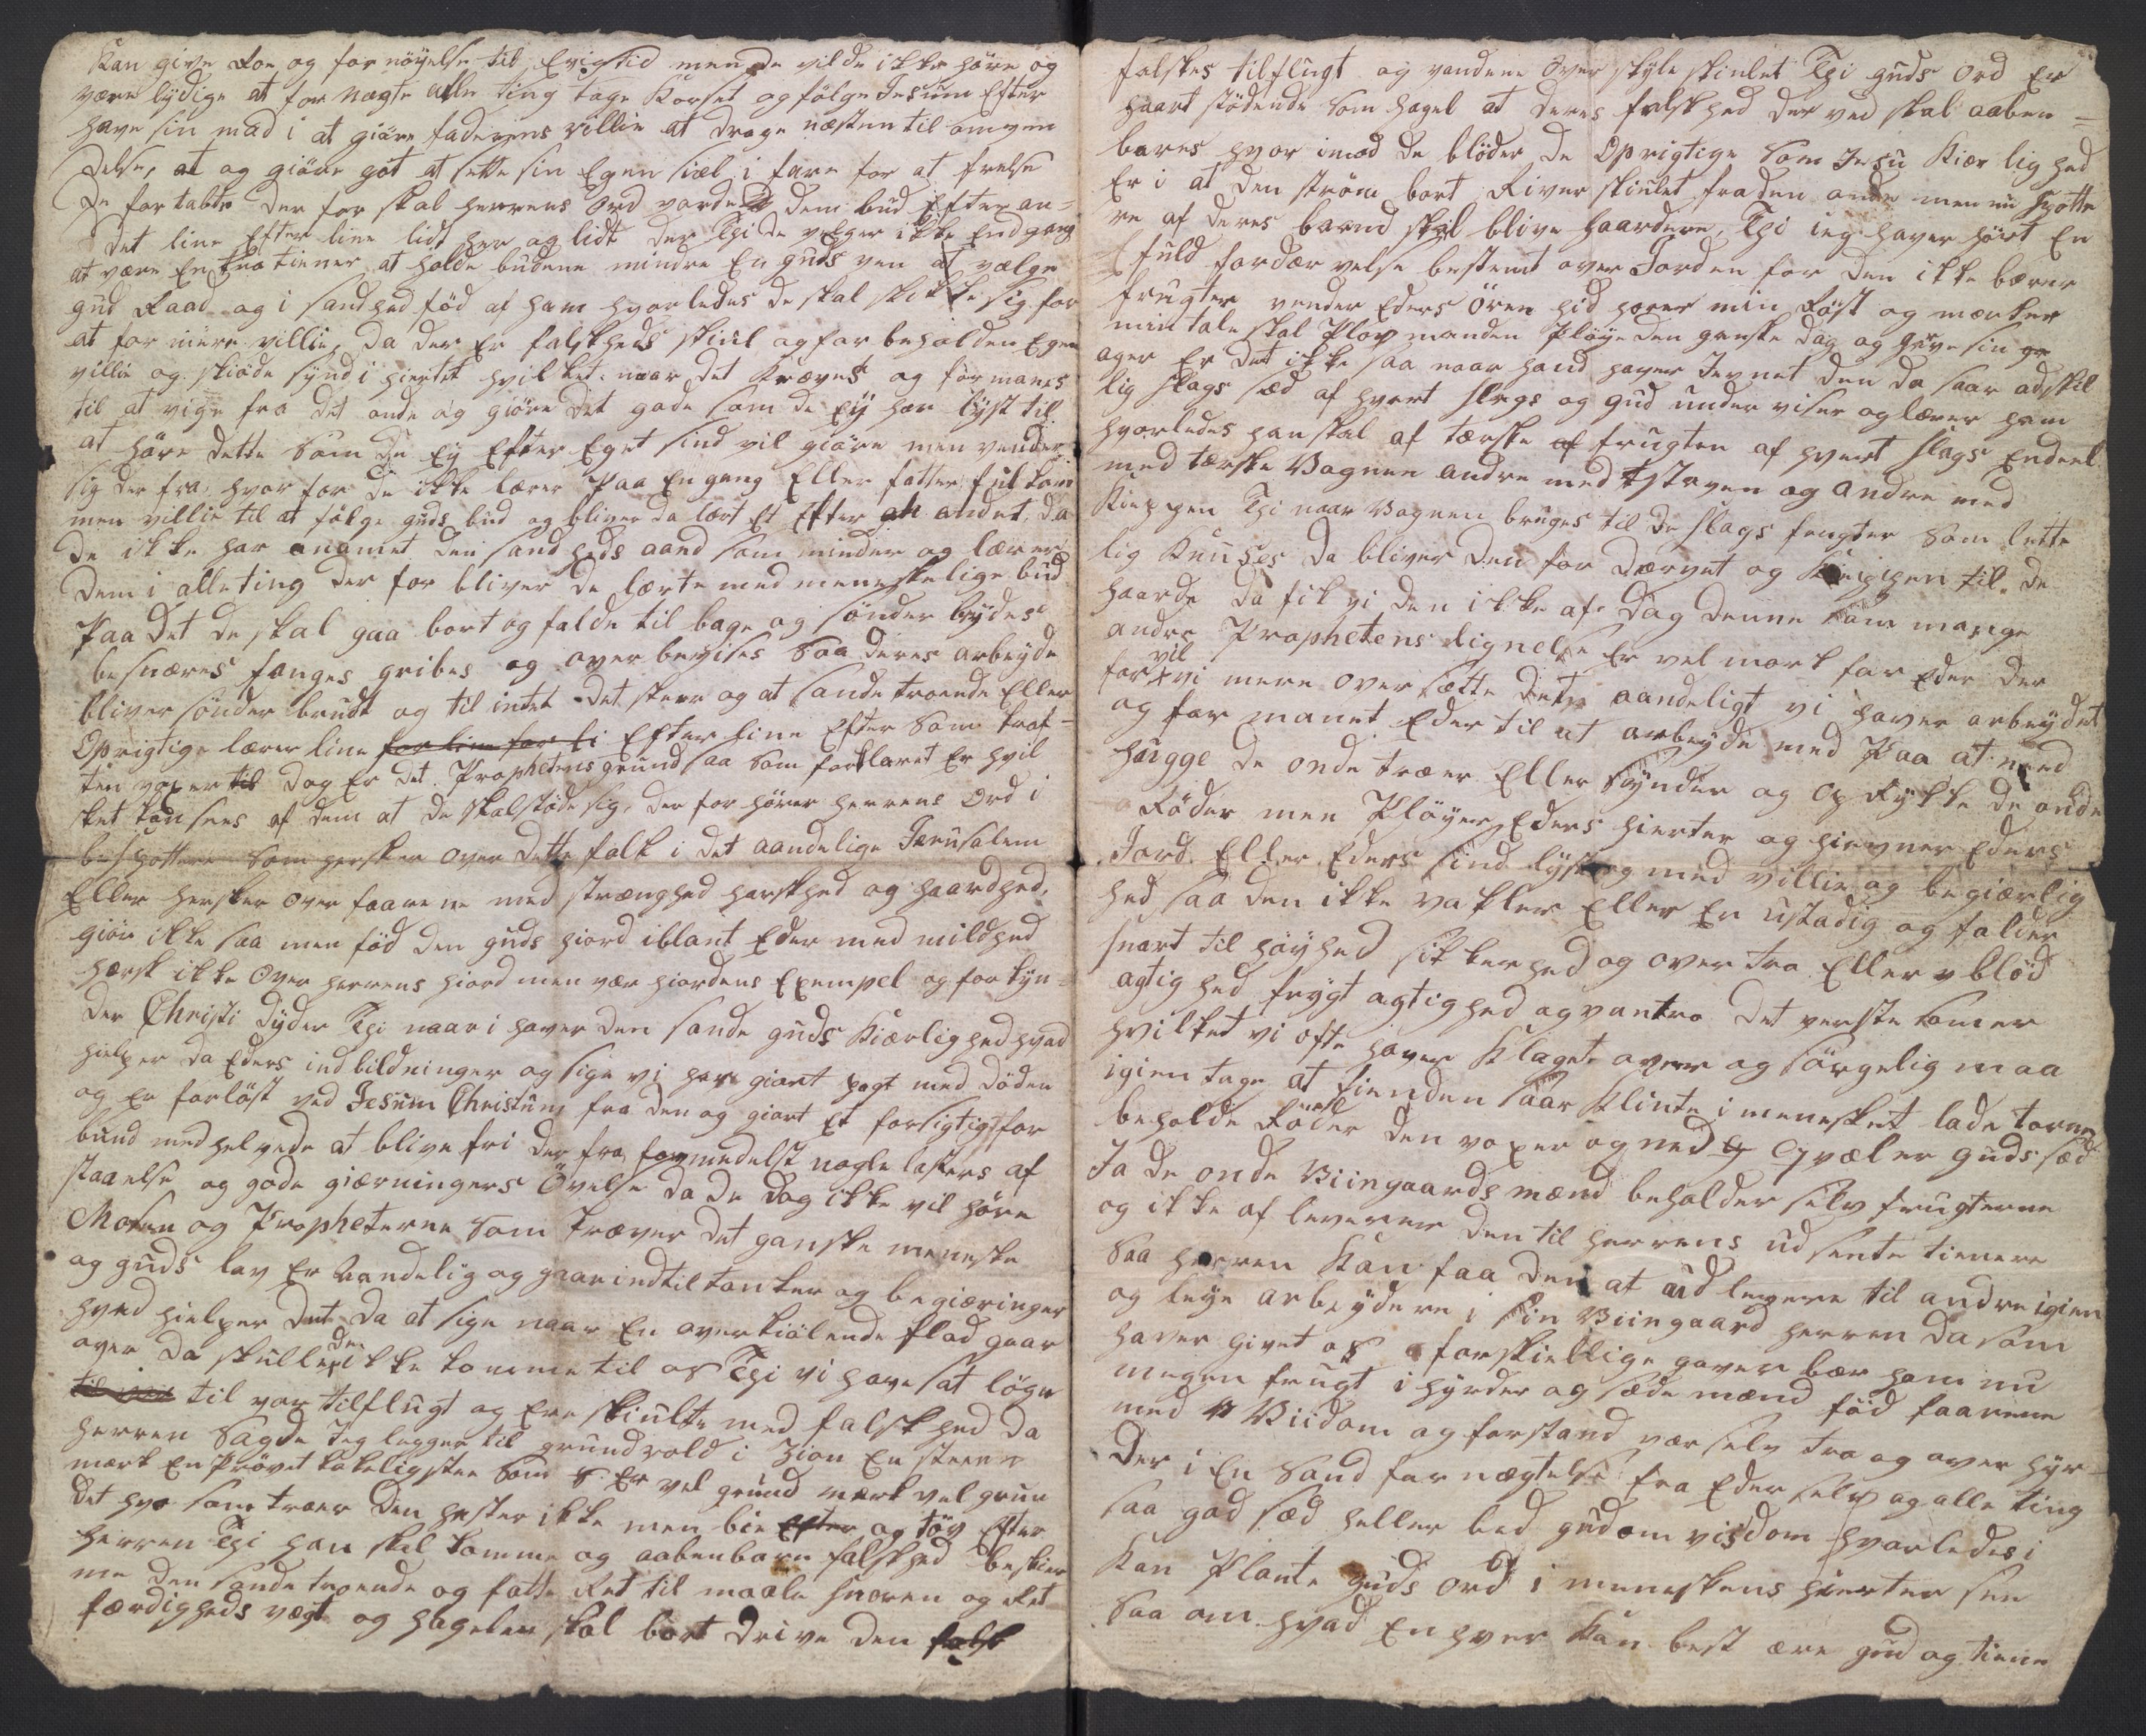 Kan give Roe og for nöyelse til Evigtid men de vilde ikke höre og
være lydige at for nægte alle ting tage Korset og fölge Jesum Efter
have sin mad i at giöre faderens villie at drage næsten til omven
delse, at og giöre got at sette sin Egen siæl i fare for at frelse
de fortabte der for skal herrens Ord vorde dem bud Efter an=
det line Efter line lidt her og lidt der Thi de velger ikke End gang
at være En tro tiener at holde budene mindre En guds ven at vælge
gud Raad og i sandhed föd af ham hvorledes de skal skikke sig for
at for niere villie, da der Er falskheds skiul og for beholden Egen
villie og skiöde synd i hiertet hvilket naar det Kræves og formanes
til at vige fra det onde og giöre det gode som de Ey har lyst til
at höre dette som de Ey Efter Eget sind vil giöre men vender
sig der fra hvor for de ikke lærer Paa En gang Eller fatter fulkom
men villie til at fölge guds bud og bliver da lært Et Efter andet, da
de ikke har anamet den sandheds aand som minder og lærer
dem i alle ting der for bliver de lærte med meneskelige bud
Paa det de skal gaa bort og falde til bage og sönder brydes
besnæres fanges gribes og over bevises saa deres arbeyde
bliver sönder brudt og til intet det skeer og at sande troende Eller
Oprigtige lærer line for line for li Efter line Efter som kraf=
ten voxer til dog Er det Prophetens grund saa som forklaret Er hvil
ket kan sees af dem at de skal stöde sig, der for hörer herrens Ord i
bespottere som hersker over dette folk i det aandelige Jerusalem
Eller hersker over faarene med strænghed harskhed og haardhed,
giör ikke saa men föd den guds hiord iblant Eder med mildhed
hersk ikke Over herrens hiord men vær hiordens Exempel og forkyn=
der Christi dyder Thi naar i haver den sande guds Kiærlighed hvad
hielper da Eders indbildninger og sige vi have giort pagt med döden
og Er forlöst ved Jesum Christum fra den og giort Et forsigtigt for
bund med helvede at blive fri der fra formedelst nogle lasters af
staaelse og gode giærningers Övelse da de dog ikke vil höre
Mosen og Propheterne som Kræver det ganske meneske
og guds lov Er Aandelig og gaar ind til tanker og begiæringer
hvad hielper det da at sige naar En overskiölende flod gaar
over da skulle den ikke komme til os Thi vi have sat lögn
til vor til vor tilflugt og Ere skiulte med falskhed da
herren sagde Jeg legger til grundvold i Zion En steen
mærk En Prövet kostelig sten som Er vel grund mærk vel grun
det hvo som troer den haster ikke men bie Efter og töv Efter
herren Thi han skal komme og aabenbare falskhed beskier
me den sande troende og sette Ret til maale snoren og Ret
færdigheds vægt og hagelen skal bort drive den falsk
falskes tilflugt og vandene Over skyle skiulet Thi guds Ord Er
haart stödende som hagel at deres falskhed der ved skal aaben=
bares hvor imod de blöder de Oprigtige som Jesu Kiærlighed
Er i at den ström bort River skiulet fra den onde men nu spotte
re af deres baand skal blive haardere, Thi ieg haver hört En
fuld fordærvelse bestemt over Jorden for den ikke bærer
frugter vender Eders Ören hid horer min Röst og mærker
min tale skal Plov manden Plöye den ganske dag og give sin
ager Er det ikke saa naar hand haver Jevnet den da saar adskil
lig slags sæd af hvert slags og gud under viser og lærer ham
hvorledes han skal af tærske af frugten af hvert slags Endeel
med tærske Vognen andre med staven og andre med
Kieppen Thi naar Vognen bruges til de slags frugter som lette
lig Knuses da bliver den for dærvet og Kieppen til de
haarde da fik vi den ikke af. dog denne som mange
andre Prophetens lignelse Er vel mork for Eder der
for vil vi mere over sætte dete aandeligt vi haver arbeydet
og for manet Eder til at arbeyde med Paa at ned
hugge de onde træer Eller synder og op Rykke de onde
Röder men Plöyer Eders hierter og hievner Eders
Jord Eller Eders sind lyst og med villie og begiærlig
hed saa den ikke vakler Eller Er ustadig og falder
snart til höyhed sikkerhed og over tro Eller blöd
agtighed frygt agtighed og vantro det verste som er
hvilket vi ofte haver Klaget over og sörgelig maa
igien tage at fienden saar Klinte i menesket lade torne
beholde Röder den voxer og ned qvæler guds sæd
Ja de onde Viingaards mænd beholder selv frugterne
og ikke af leverer den til herrens udsente tienere
saa herren Kan faa den at udlevere til andre igien
og leye arbeydere i sin Viingaard herren da som
haver givet os forskiellige gaver bær ham nu
megen frugt i hyrder og sæde mænd föd faarene
med Viisdom og forstand vær selv tro og over hyr=
der i En sand for nægtelse fra Eder selv og alle ting
saa god sæd heller bed gud om visdom hvorledes i
Kan Plante guds ord i meneskens hierter see
saa om hvad En hver Kan best ære gud og tiene